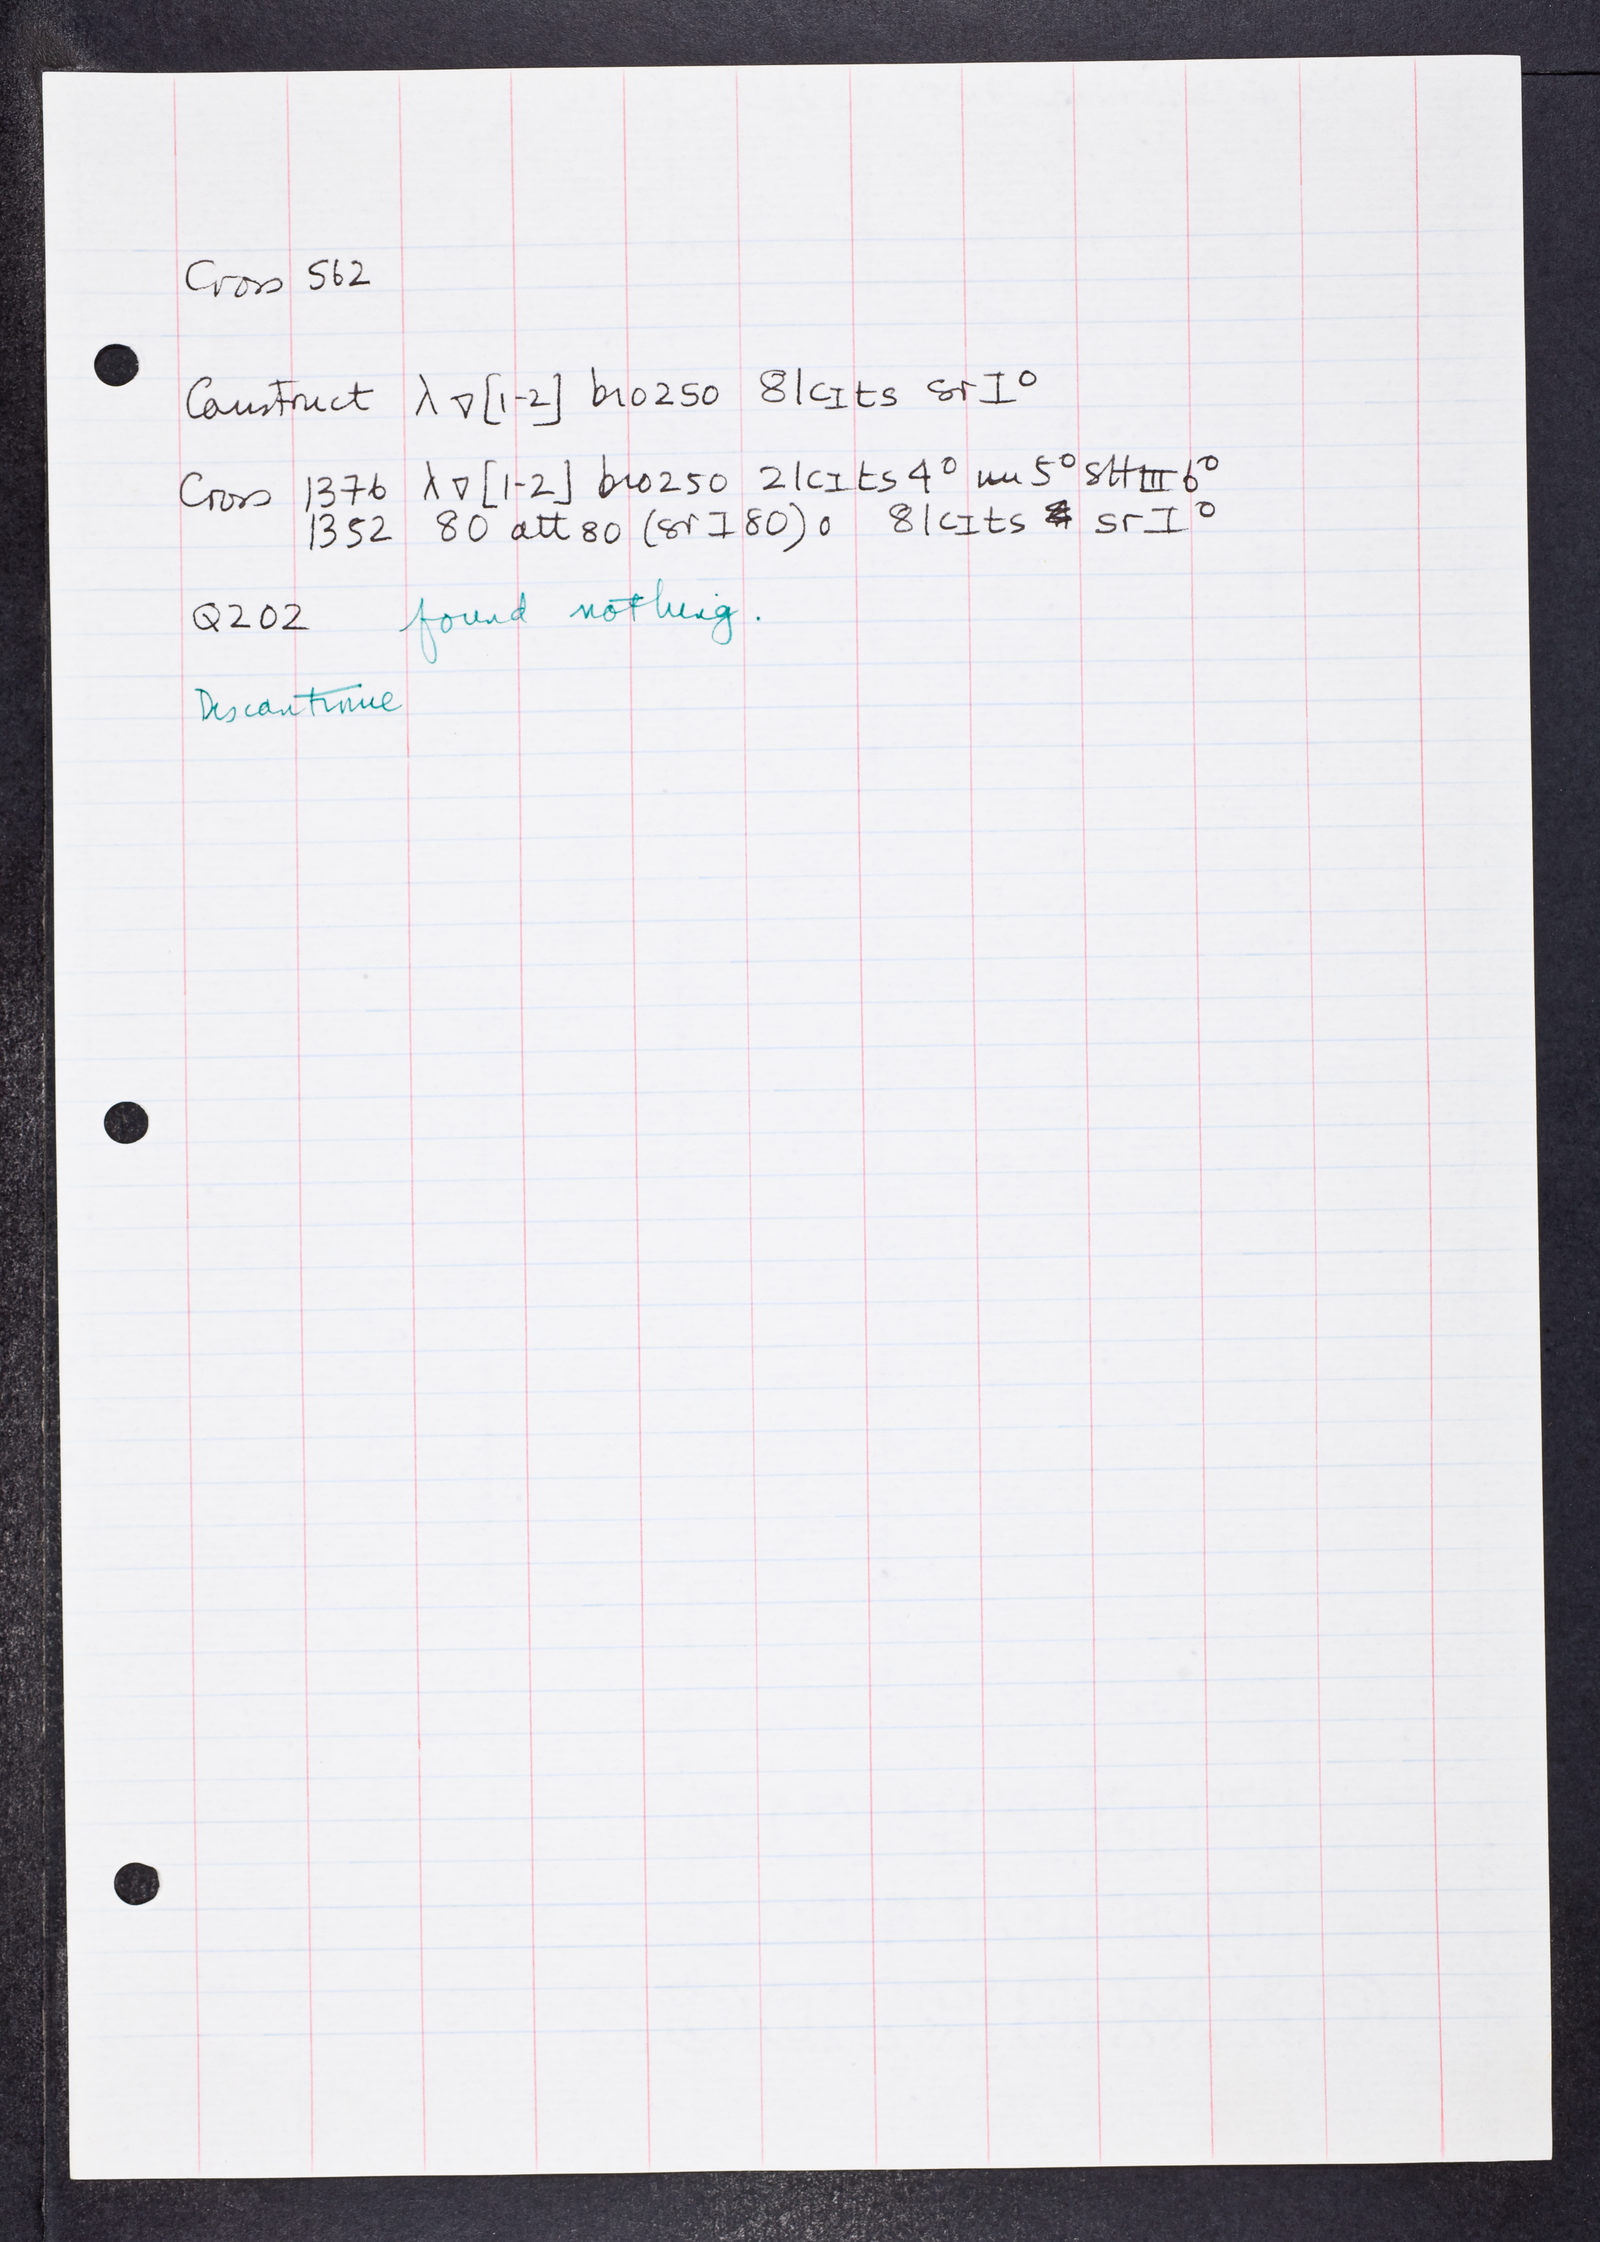 Cross 562
Construct λ ∇[1-2] bio250 81cIts srI°
Cross 1376 λ ∇[1-2] bio250 21cIts4° nu5° sHIII6°
1352 80 att80 (srI80)° 81cIts srI°
Q202 found nothing.
Discontinue